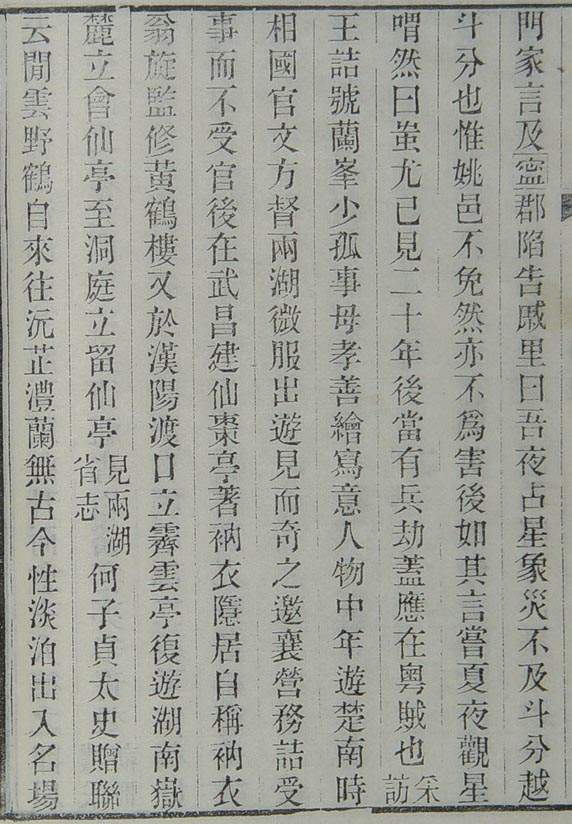 門家言及寍郡陷告戚里曰吾夜占星象災不及斗分越
斗分也惟姚邑不免然亦不爲害後如其言嘗夏夜觀星
喟然曰蚩尤己見二十年後當有兵劫蓋應在粵賊也采訪
王詰號蘭峯少孤事母孝善繪寫意人物中年遊楚南時
相國官文方督兩湖微服出遊見而奇之邀襄營務詰受
事而不受官後在武昌建仙棗亭著衲衣隱居自稱衲衣
翁旋監修黃鶴樓又於漢陽渡口立霽雲亭復遊湖南嶽
麓立會仙亭至洞庭立留仙亭見兩湖省志何子貞太史贈聯
云閒雲野鶴自來往沅芷澧蘭無古今性淡泊出入名場